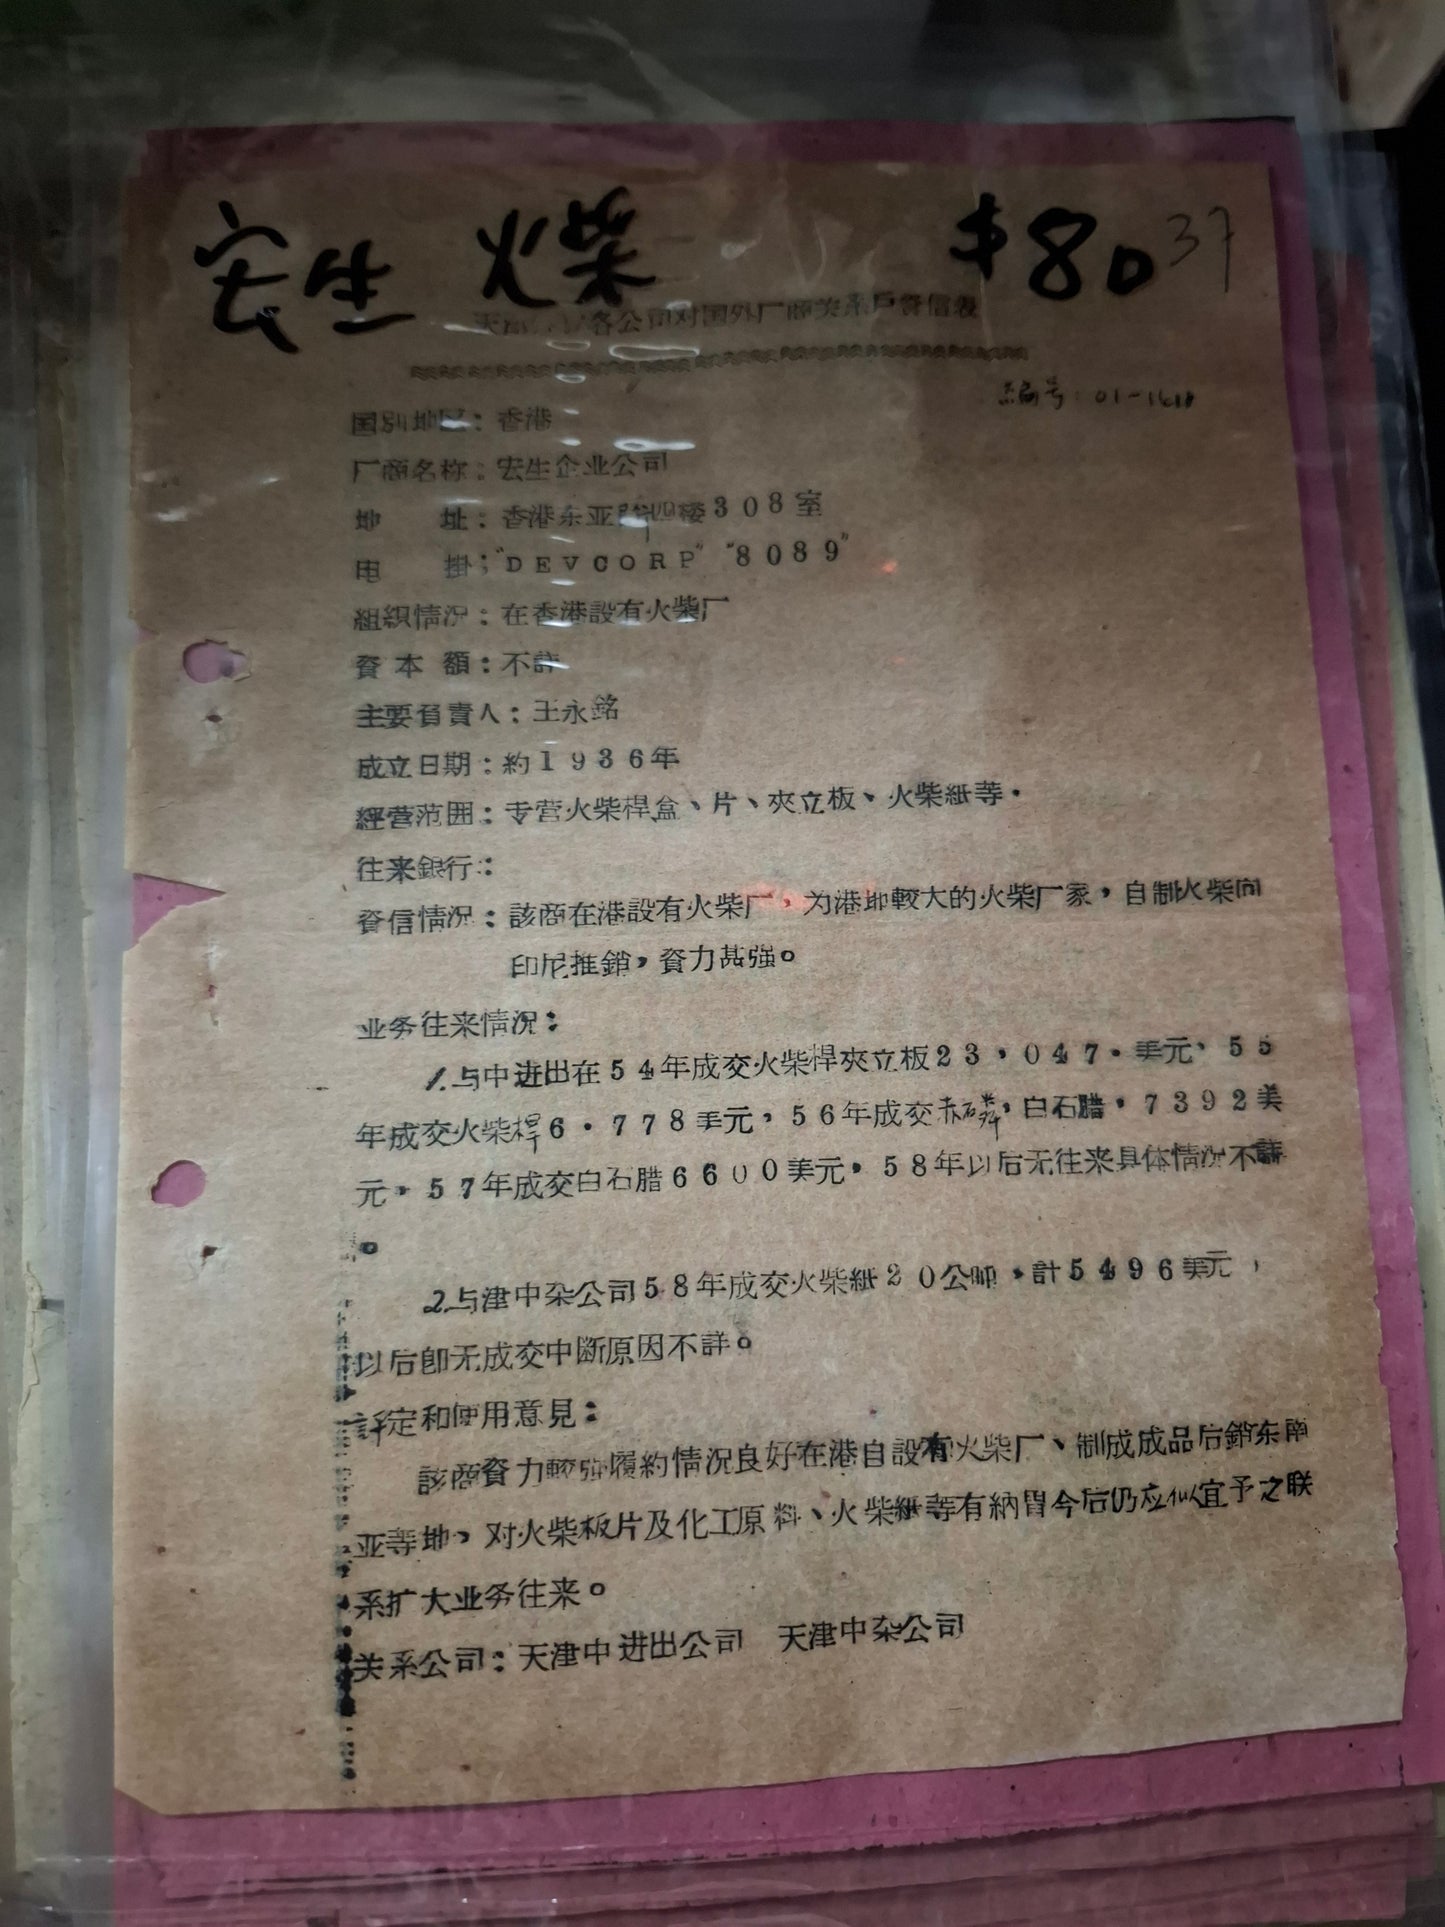 宏生 火柴 $80 37
各公司对国外厂商关系戶資信表
編号：01-
国别地区：香港
厂商名称：宏生企业公司
地 址：香港东亚四楼308室
电 掛："DEVCORP" "8089"
組織情况：在香港設有火柴厂
資本額：不詳
主要負責人：王永銘
成立日期：約1936年
經营范囲：专营火柴桿盒、片、夾立板、火柴紙等．
往来銀行：
資信情况：該商在港設有火柴厂，为港地較大的火柴厂家，自制火柴向
印尼推銷，資力甚强。
业务往来情况：
1.与中进出在54年成交火柴桿夾立板23，047．美元，55
年成交火柴桿6．778美元，56年成交赤磷，白石腊，7392美
元，57年成交白石腊6600美元，58年以后无往来具体情况不詳
。
2.与津中杂公司58年成交火柴紙20公吨，計5496美元，
以后卽无成交中断原因不詳。
評定和使用意見：
該商資力較强履約情况良好在港自設有火柴厂、制成成品后銷东南
亚等地，对火柴板片及化工原料、火柴紙等有納胃今后仍应似宜予之联
系扩大业务往来。
关系公司：天津中进出公司 天津中杂公司